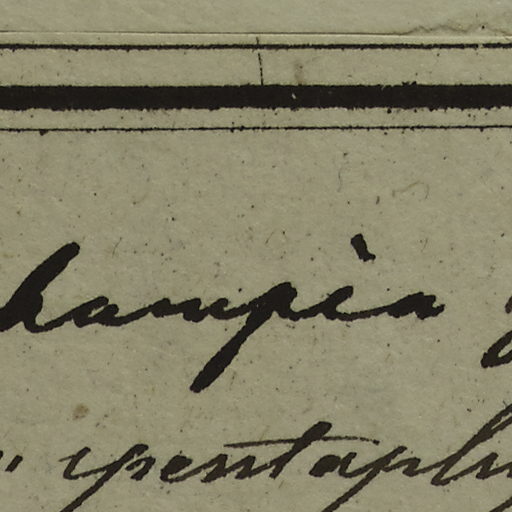 hampia
pentaphy